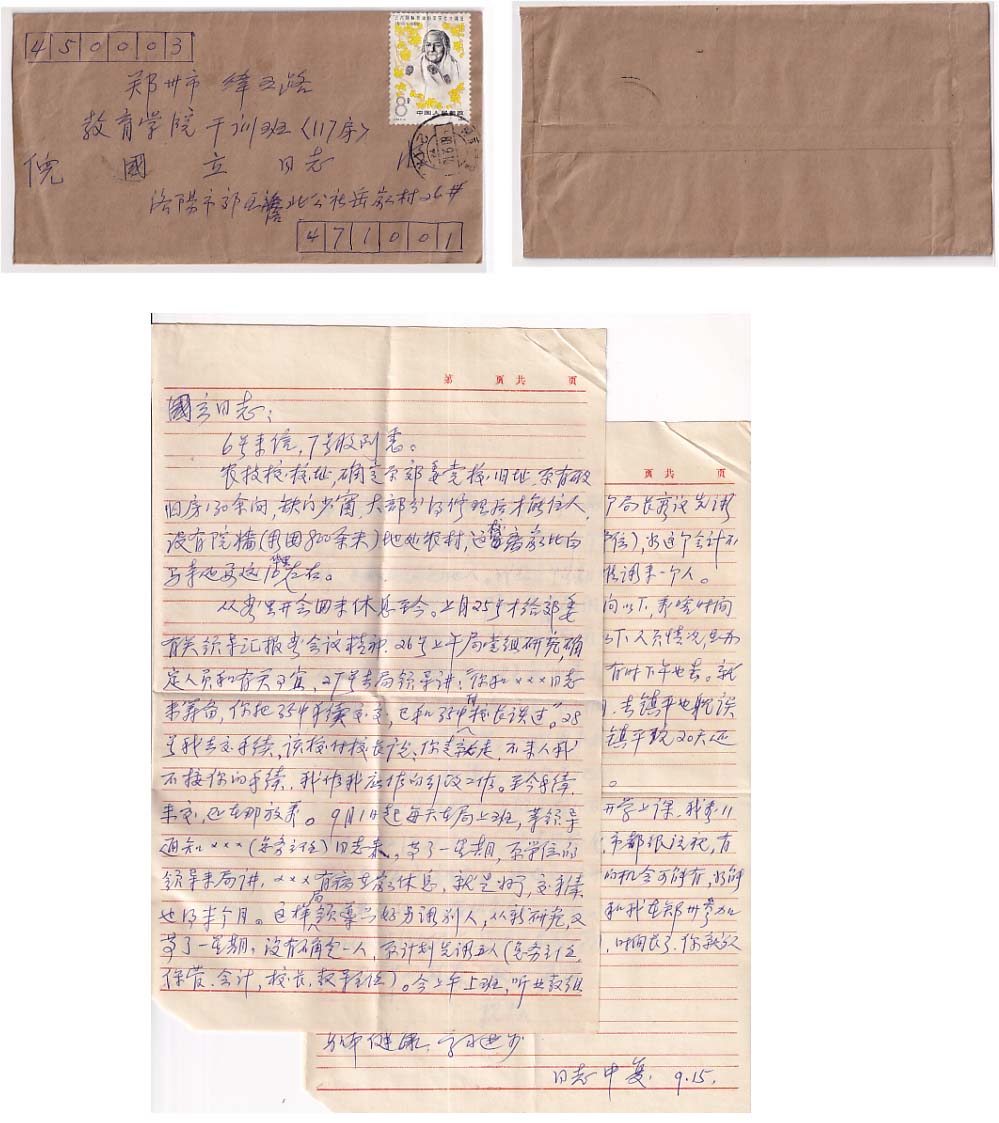 450003
郑州市 纬五路
教育学院 干训班(117房)
倪 國 立 同志 收
洛阳市郊区 北公社岳家村26#
471001
8分
中国人民邮政
第 页 共 页
國立同志:
6号来信,7号收到悉。
农技校校址,确定在郊委党校旧址,原有破
旧房130余间,缺门少窗,大部分得修理后才能住人,
没有院墙(周围800余米)地处农村,这 离家比白
马寺还要远10华里左右。
从省里开会回来休息至今。上月25号才给郊委
有关领导汇报省会议精神,26号上午局党组研究,确
定人员和有关事宜,27号去局领导讲:你和×××同志
来筹备,你把 中手续交交,已和 中 校长谈过。28
号我去交手续,该校付校长说:你走就走,不来人我
不接你的手续,我作我应作的行政工作。至今手续
未交,还在那放着。9月1日起每天在局上班,等领导
通知×××(总务主任)同志来,等了一星期,原单位的
领导来局讲,×××有病在家休息,就是好了,交手续
也得半个月。这样局领导 好另调别人,从新研究,又
等了一星期,没有确定一人,原计划先调五人(总务主任、
保管、会计、校长、教导主任)。今上午上班,听 教组
页 共 页
个局长商议先调
单位),为这个会计不
调来一个人。
向以下,利啥时间
以下人员情况,
有时下午也去。就
去镇平也耽误
镇平 20天还
。
开学上课。我省11
市都很 ,有
的机会可能有,
和我在郑州参加
时间长了,你就
身体健康、学习进步
同志 申复. 9.15.